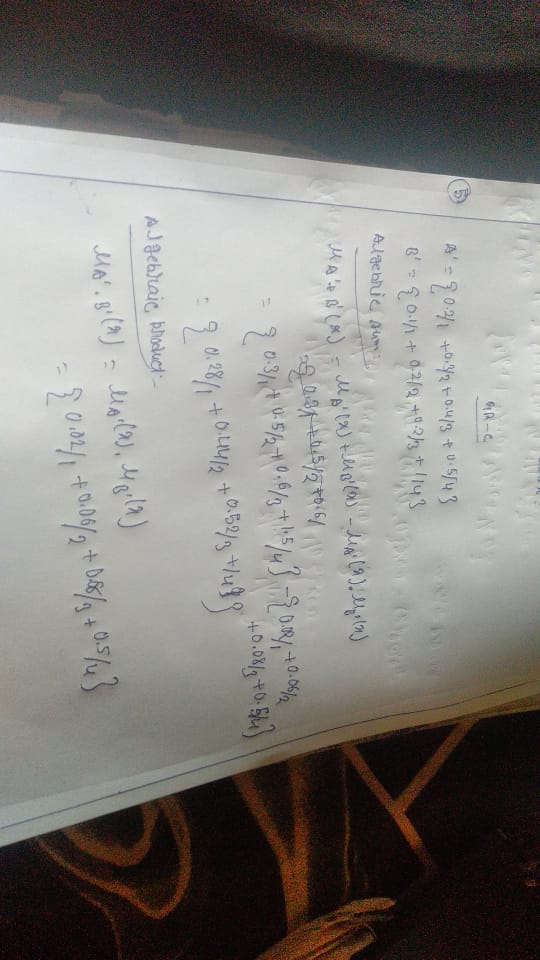 GR-C
5
A' = {0.2/1 + 0.3/2 + 0.4/3 + 0.5/4}
B' = {0.1/1 + 0.2/2 + 0.2/3 + 1/4}
Algebric sum:-
μA'+B'(x) = μA'(x) + μB'(x) - μA'(x).μB'(x)
= {0.3/1 + 0.5/2 + 0.6/
= {0.3/1 + 0.5/2 + 0.6/3 + 1.5/4} - {0.02/1 + 0.06/2
+ 0.08/3 + 0.5/4}
= {0.28/1 + 0.44/2 + 0.52/3 + 1/4}
Algebraic product:-
μA'.B'(x) = μA'(x). μB'(x)
= {0.02/1 + 0.06/2 + 0.08/3 + 0.5/4}